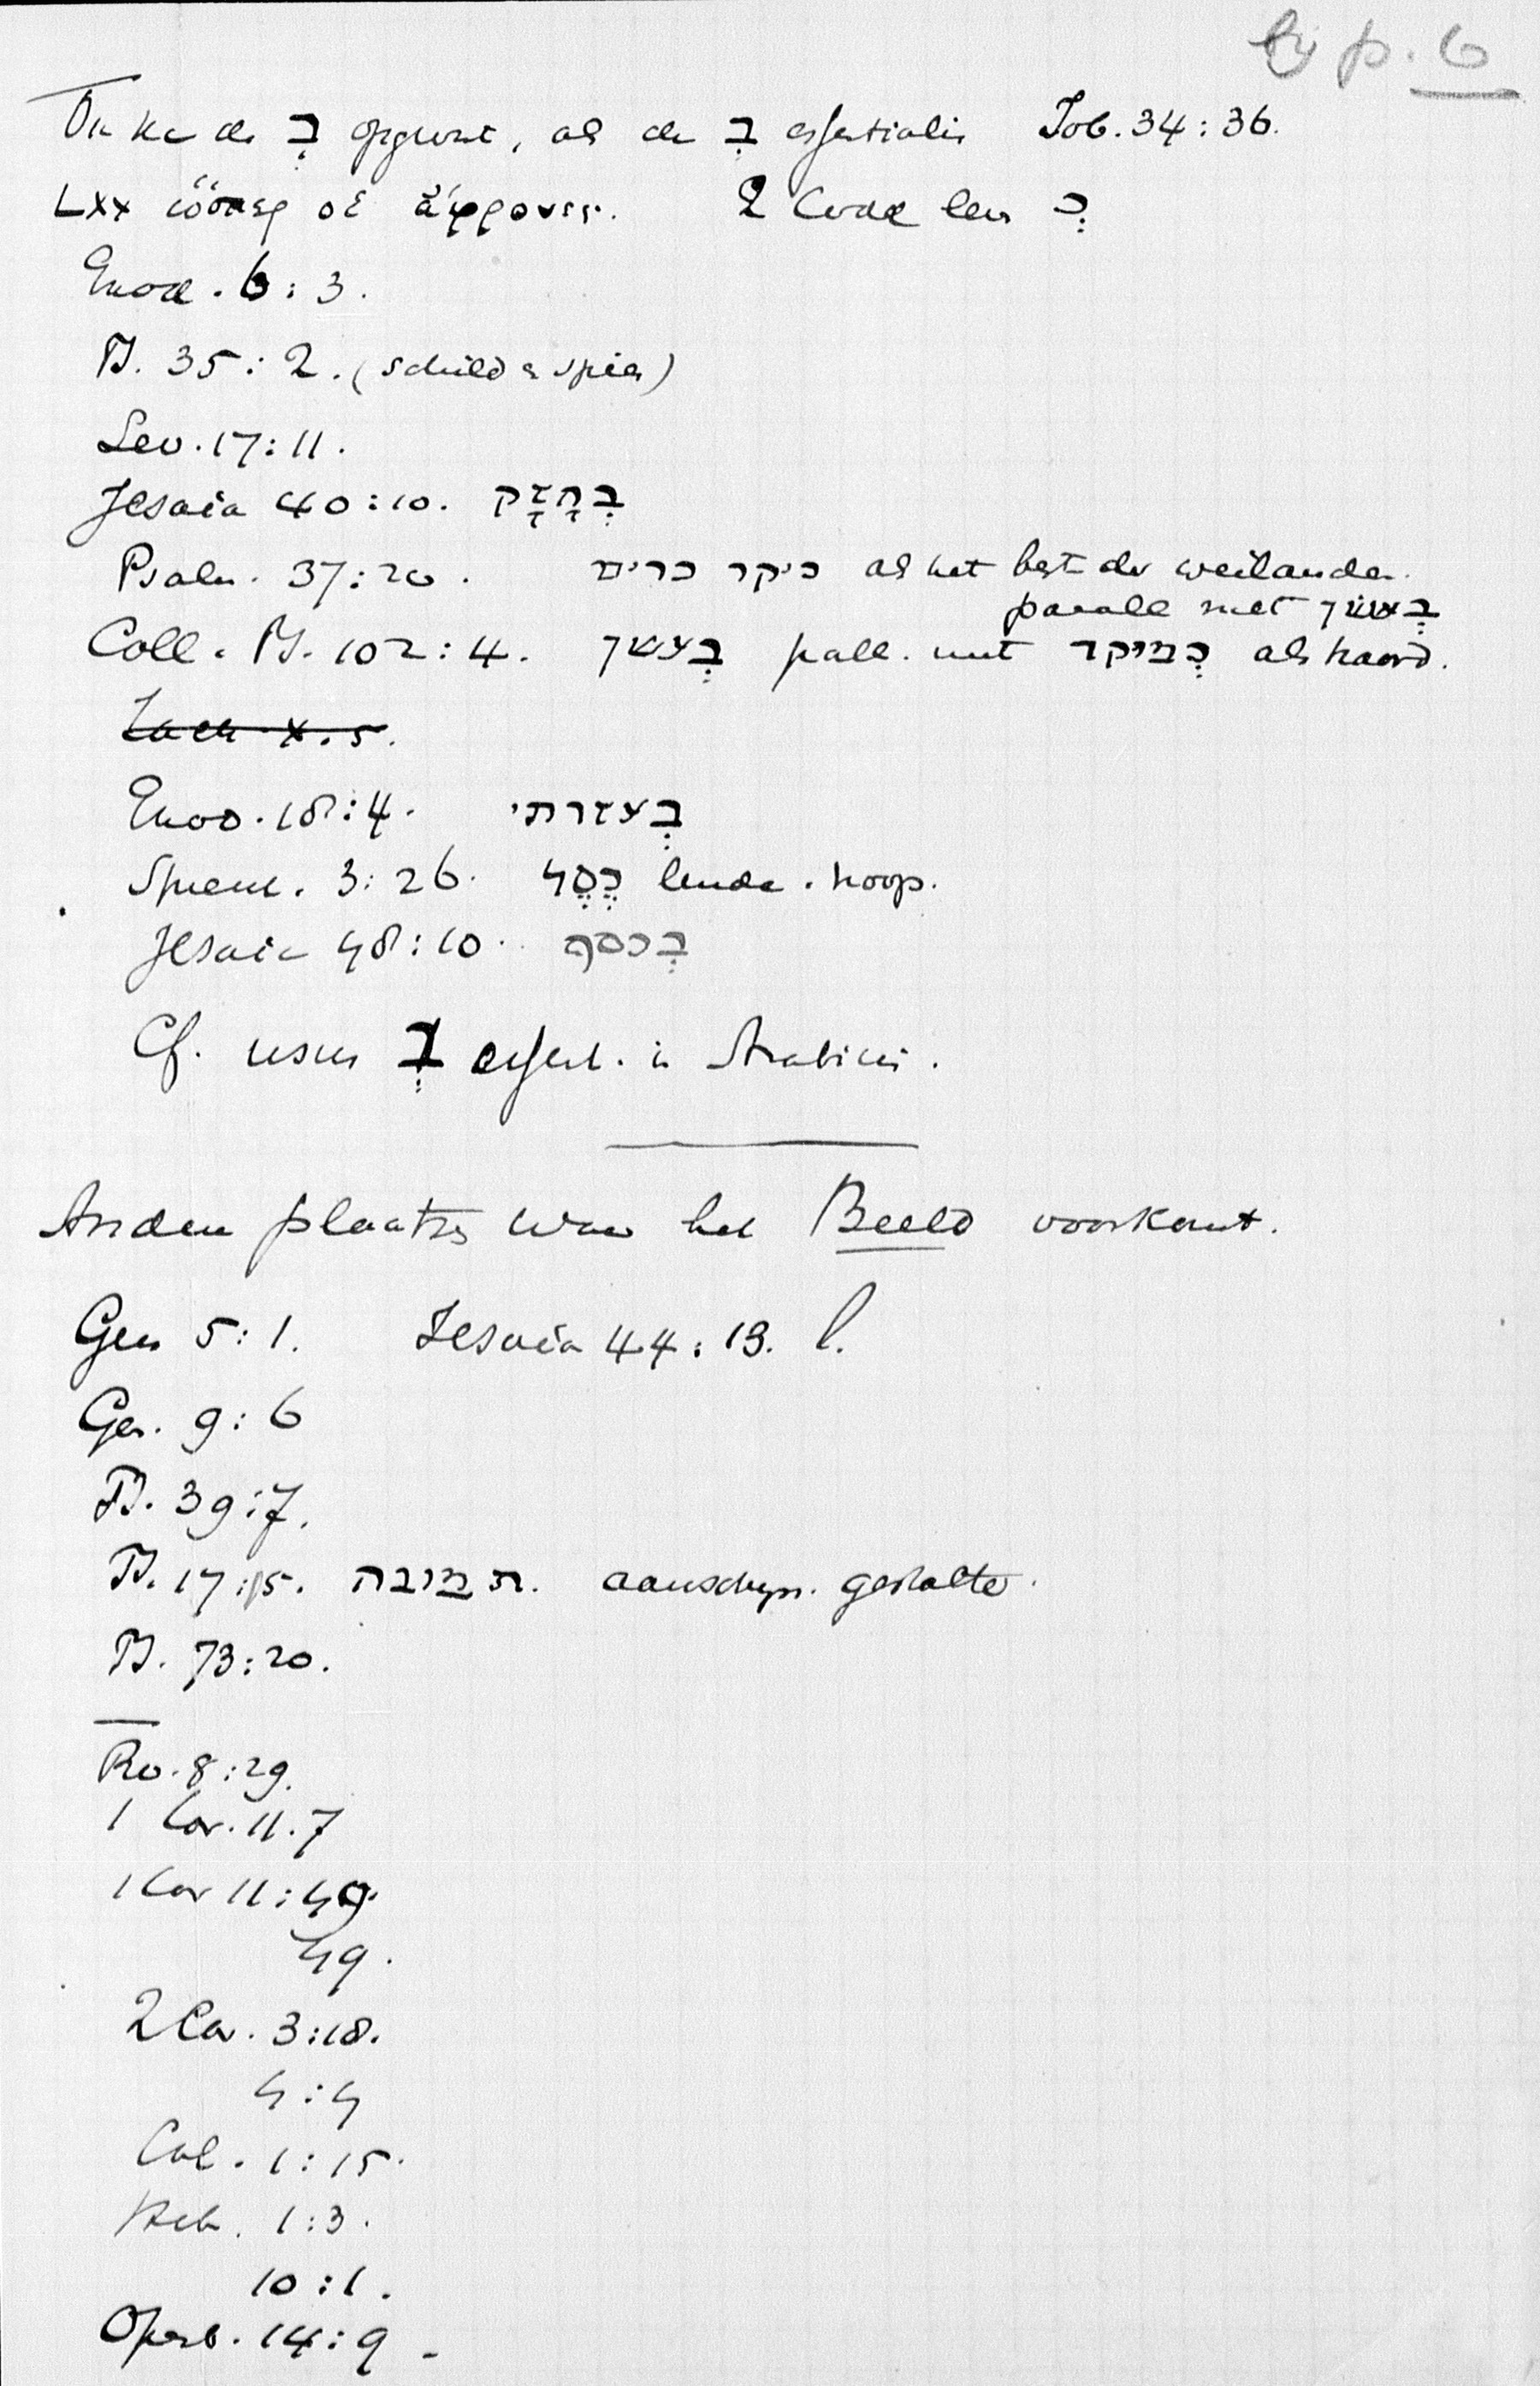 bij p. 6
Ook de בְ opgevat, als de בְ essentialis Job. 34:36.
LXX ὥσπερ οἱ ἄφρονες. 2 Codd lezen כְ
Exod. 6:3.
Ps. 35:2. (schild & spies)
Lev. 17:11.
Jesaia 40:10. בְחָזָק
Psalm. 37:20. כיקר כרים als het best der weilanden.
parall met בְעשן
Coll. Ps. 102:4. בְעשן pall. met כְמוקד als haard.
Zach X.5.
Exod. 18:4. בְעזרתי
Spreuk. 3:26. כֶסֶל lende. hoop.
Jesaia 48:10. בְכסף
Cf. usus בְ essent. in Arabicis.
Andere plaatsen waar het Beeld voorkomt.
Gen 5:1. Jesaia 44:13. l.
Gen. 9:6
Ps. 39:7.
Ps. 17:15. תמונה. aanschijn. gestalte.
Ps. 73:20.
Ro. 8:29.
1 Cor. 11.7
1 Cor 11:49.
49.
2 Cor. 3:18.
4:4
Col. 1:15.
Heb. 1:3.
10:1.
Openb. 14:9